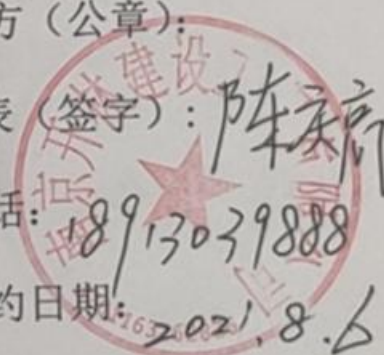 方（公章）:
表（签字）: 陈庆
话: 18913039888
约日期: 2021.8.6
南京 建设